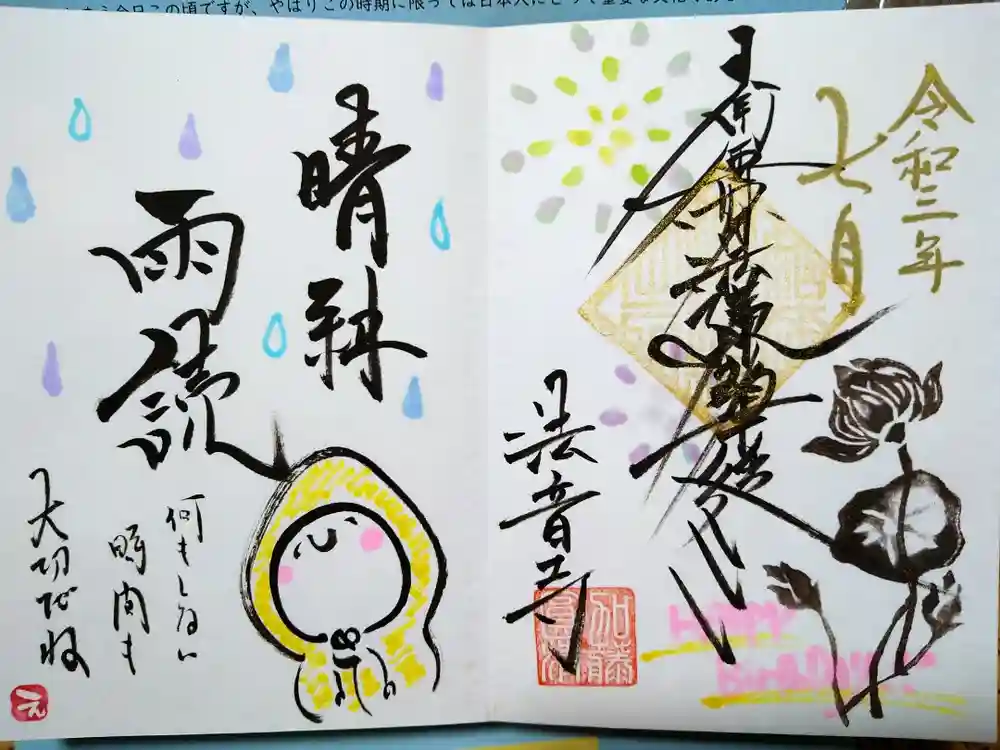 令和二年
七月
南無妙法蓮華経
法音寺
HAPPY
BirthDAY
晴耕
雨読
何もしない
時間も
大切だね
え